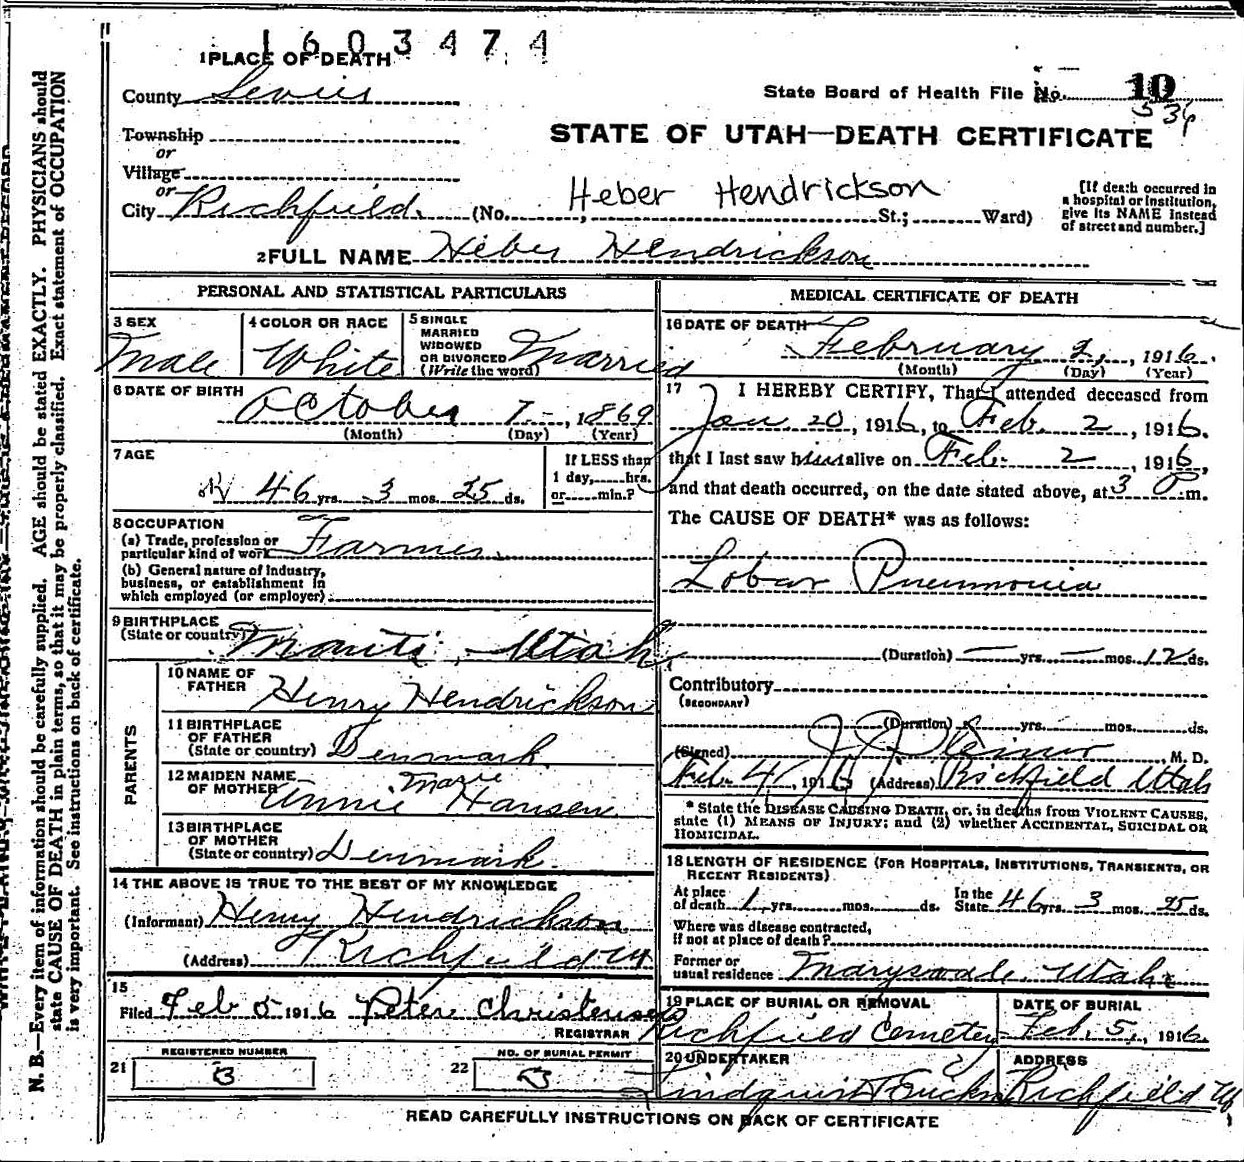 1603474
1 PLACE OF DEATH
County Sevier
State Board of Health File No. 10
536
Township
or
Village
or
STATE OF UTAH—DEATH CERTIFICATE
Heber Hendrickson
City Richfield. (No. ; St.; Ward)
[If death occurred in
a hospital or institution,
give its NAME instead
of street and number.]
2 FULL NAME Heber Hendrickson
PERSONAL AND STATISTICAL PARTICULARS
3 SEX
Male
4 COLOR OR RACE
White
5 SINGLE
MARRIED
WIDOWED
OR DIVORCED
(Write the word)
Married
6 DATE OF BIRTH
October 7 -, 1869
(Month) (Day) (Year)
7 AGE
46 yrs. 3 mos. 25 ds.
If LESS than
1 day, hrs.
or min.?
8 OCCUPATION
(a) Trade, profession or
particular kind of work Farmer
(b) General nature of Industry,
business, or establishment in
which employed (or employer)
9 BIRTHPLACE
(State or country) Manti, Utah
PARENTS
10 NAME OF
FATHER Henry Hendrickson
11 BIRTHPLACE
OF FATHER
(State or country) Denmark
12 MAIDEN NAME
OF MOTHER Annie Marie Hansen
13 BIRTHPLACE
OF MOTHER
(State or country) Denmark
14 THE ABOVE IS TRUE TO THE BEST OF MY KNOWLEDGE
(Informant) Henry Hendrickson
(Address) Richfield Ut
15
Filed Feb 5 1916 Peter Christensen
REGISTRAR
21 REGISTERED NUMBER
3
22 NO. OF BURIAL PERMIT
3
MEDICAL CERTIFICATE OF DEATH
16 DATE OF DEATH
February 2, 1916.
(Month) (Day) (Year)
17 I HEREBY CERTIFY, That I attended deceased from
Jan 20, 1916, to Feb. 2, 1916.
that I last saw him alive on Feb. 2, 1916,
and that death occurred, on the date stated above, at 3 P m.
The CAUSE OF DEATH* was as follows:
Lobar Pneumonia
(Duration) — yrs. — mos. 12 ds.
Contributory
(SECONDARY)
(Duration) yrs. mos. ds.
(Signed) J. J. Steiner M. D.
Feb. 4, 1916 (Address) Richfield Utah
* State the DISEASE CAUSING DEATH, or, in deaths from VIOLENT CAUSES,
state (1) MEANS OF INJURY; and (2) whether ACCIDENTAL, SUICIDAL OR
HOMICIDAL.
18 LENGTH OF RESIDENCE (FOR HOSPITALS, INSTITUTIONS, TRANSIENTS, OR
RECENT RESIDENTS)
At place
of death 1 yrs. mos. ds. In the
State 46 yrs. 3 mos. 25 ds.
Where was disease contracted,
if not at place of death?
Former or
usual residence Marysvale, Utah
19 PLACE OF BURIAL OR REMOVAL
Richfield Cemetery
DATE OF BURIAL
Feb. 5, 1916.
20 UNDERTAKER
Lindquist
ADDRESS
Richfield Ut
READ CAREFULLY INSTRUCTIONS ON BACK OF CERTIFICATE
N. B.—Every item of information should be carefully supplied. AGE should be stated EXACTLY. PHYSICIANS should
state CAUSE OF DEATH in plain terms, so that it may be properly classified. Exact statement of OCCUPATION
is very important. See instructions on back of certificate.